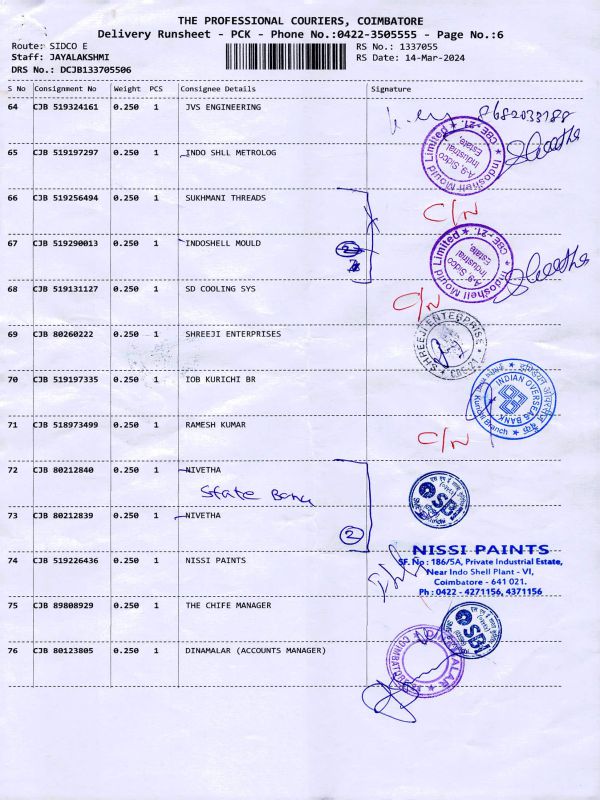 THE PROFESSIONAL COURIERS, COIMBATORE
Delivery Runsheet - PCK - Phone No.:0422-3505555 - Page No.:6
Route: SIDCO E
Staff: JAYALAKSHMI
DRS No.: DCJB133705506
RS No.: 1337055
RS Date: 14-Mar-2024
S No Consignment No Weight PCS Consignee Details Signature
64 CJB 519324161 0.250 1 JVS ENGINEERING
8682033188
65 CJB 519197297 0.250 1 INDO SHLL METROLOG
Indoshell Mould Limited * CBE-21. *
A-9, Sidco
Industrial
Estate,
66 CJB 519256494 0.250 1 SUKHMANI THREADS
C/N
67 CJB 519290013 0.250 1 INDOSHELL MOULD
2
Indoshell Mould Limited * CBE-21. *
A-9, Sidco
Industrial
Estate,
68 CJB 519131127 0.250 1 SD COOLING SYS
C/N
69 CJB 80260222 0.250 1 SHREEJI ENTERPRISES
SHREEJI ENTERPRISE
70 CJB 519197335 0.250 1 IOB KURICHI BR
INDIAN OVERSEAS BANK
71 CJB 518973499 0.250 1 RAMESH KUMAR
C/N
72 CJB 80212840 0.250 1 NIVETHA
State Bank
SBI
73 CJB 80212839 0.250 1 NIVETHA
2
74 CJB 519226436 0.250 1 NISSI PAINTS
NISSI PAINTS
SF. No : 186/5A, Private Industrial Estate,
Near Indo Shell Plant - VI,
Coimbatore - 641 021.
Ph : 0422 - 4271156, 4371156
75 CJB 89808929 0.250 1 THE CHIFE MANAGER
SBI
76 CJB 80123805 0.250 1 DINAMALAR (ACCOUNTS MANAGER)